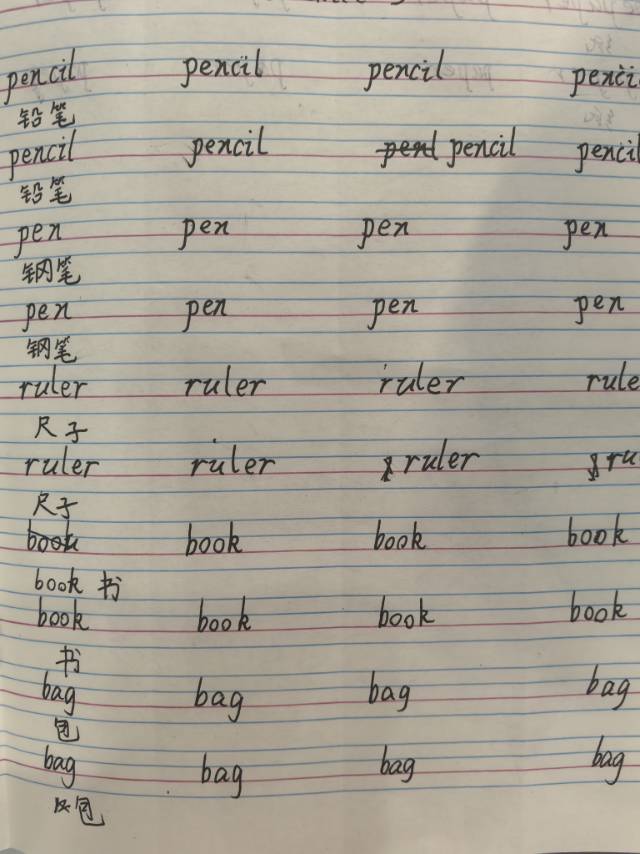 pencil pencil pencil penci
铅笔
pencil pencil pencil pencil
铅笔
pen pen pen pen
钢笔
pen pen pen pen
钢笔
ruler ruler ruler rule
尺子
ruler ruler ruler ru
尺子
book book book
book 书
book book book book
书
bag bag bag bag
包
bag bag bag bag
包